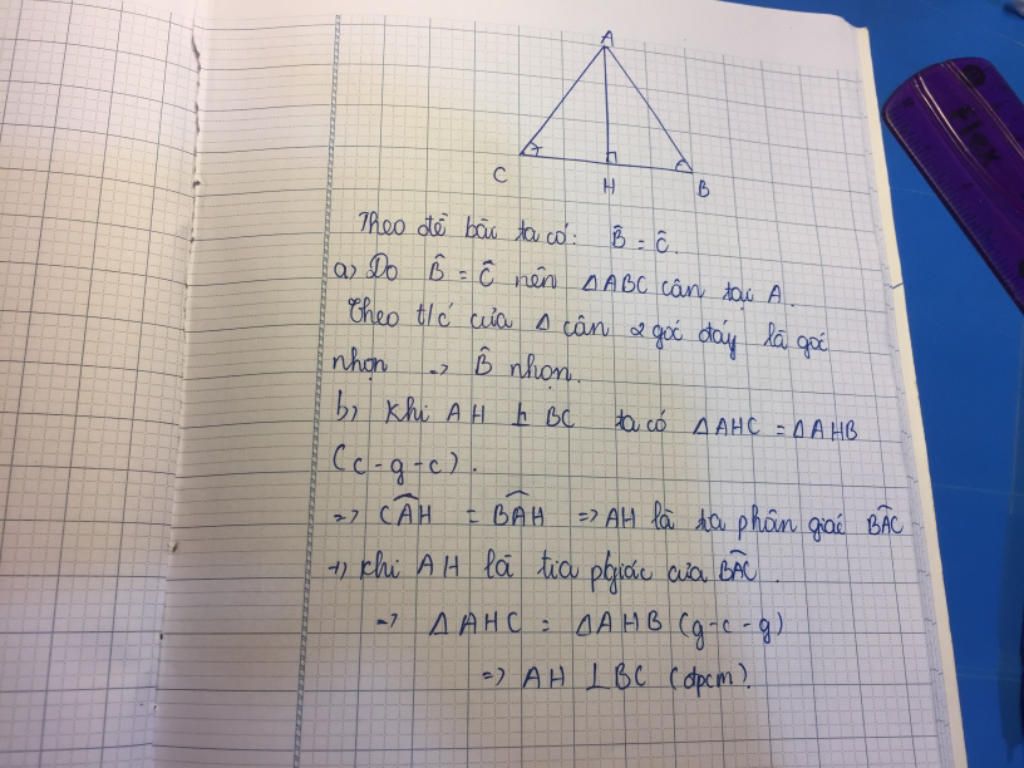 A
C
H
B
Flex
Theo đề bài ta có: B̂ = Ĉ.
a, Do B̂ = Ĉ nên ΔABC cân tại A.
Theo t/c của Δ cân 2 góc đáy là góc
nhọn => B̂ nhọn.
b, Khi AH ⊥ BC ta có ΔAHC = ΔAHB
(c-g-c).
=> CÂH = BÂH => AH là ta phân giác BÂC
+, Khi AH là tia pgiác của BÂC.
=> ΔAHC = ΔAHB (g-c-g)
=> AH ⊥ BC (đpcm).